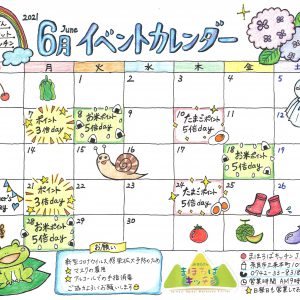 2021
6月 June イベントカレンダー
月 火 水 木 金
1 2 3 4 5
7 ポイント3倍day
8 お米ポイント5倍day
9
10 たまごポイント5倍day
11
14 15 16 17
18 お米ポイント5倍day
21 ポイント3倍day
22 23
24 たまごポイント5倍day
25
28 お米ポイント5倍day
29 30
お願い
新型コロナウイルス感染拡大予防のため
☆マスクの着用
☆アルコールでの手指消毒
ご協力よろしくお願いします
まほろばキッチン
0742-33-
営業時間 AM9時